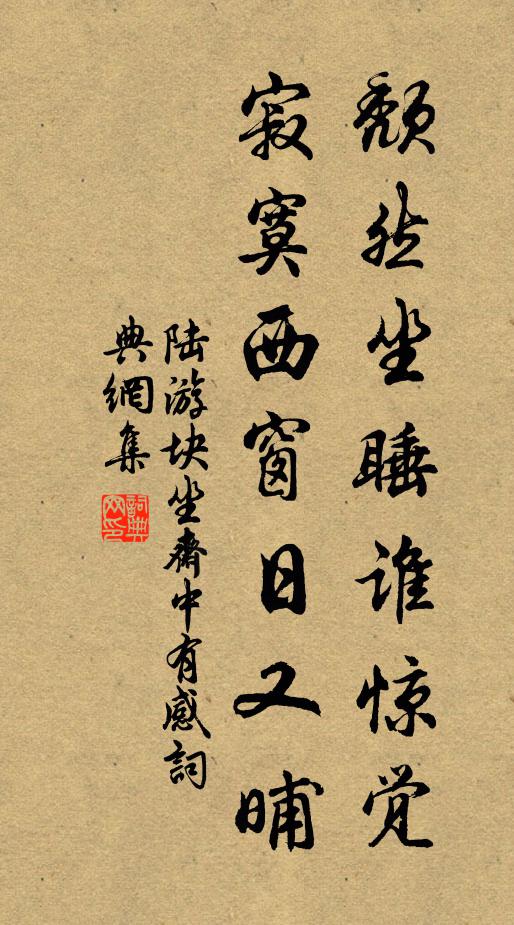 颓然坐睡谁惊觉
寂寞西窗日又晡
陆游块坐斋中有感詞
典網集
詞典网印